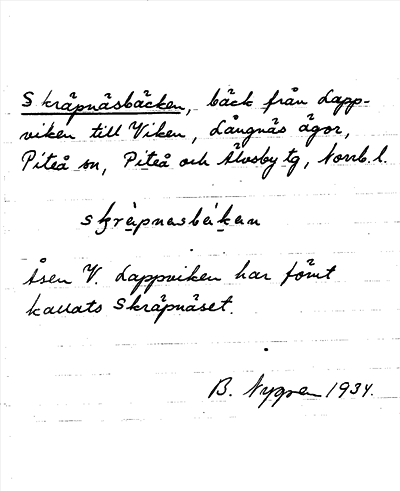 Skräpnäsbäcken, bäck från Lapp-
viken till Viken, Långnäs ägor,
Piteå sn, Piteå och Älvsby tg, Norrb. l.
skräpnasbäkan
Åsen V. Lappviken har förut
kallats Skräpnäset.
B. Nygren 1934.